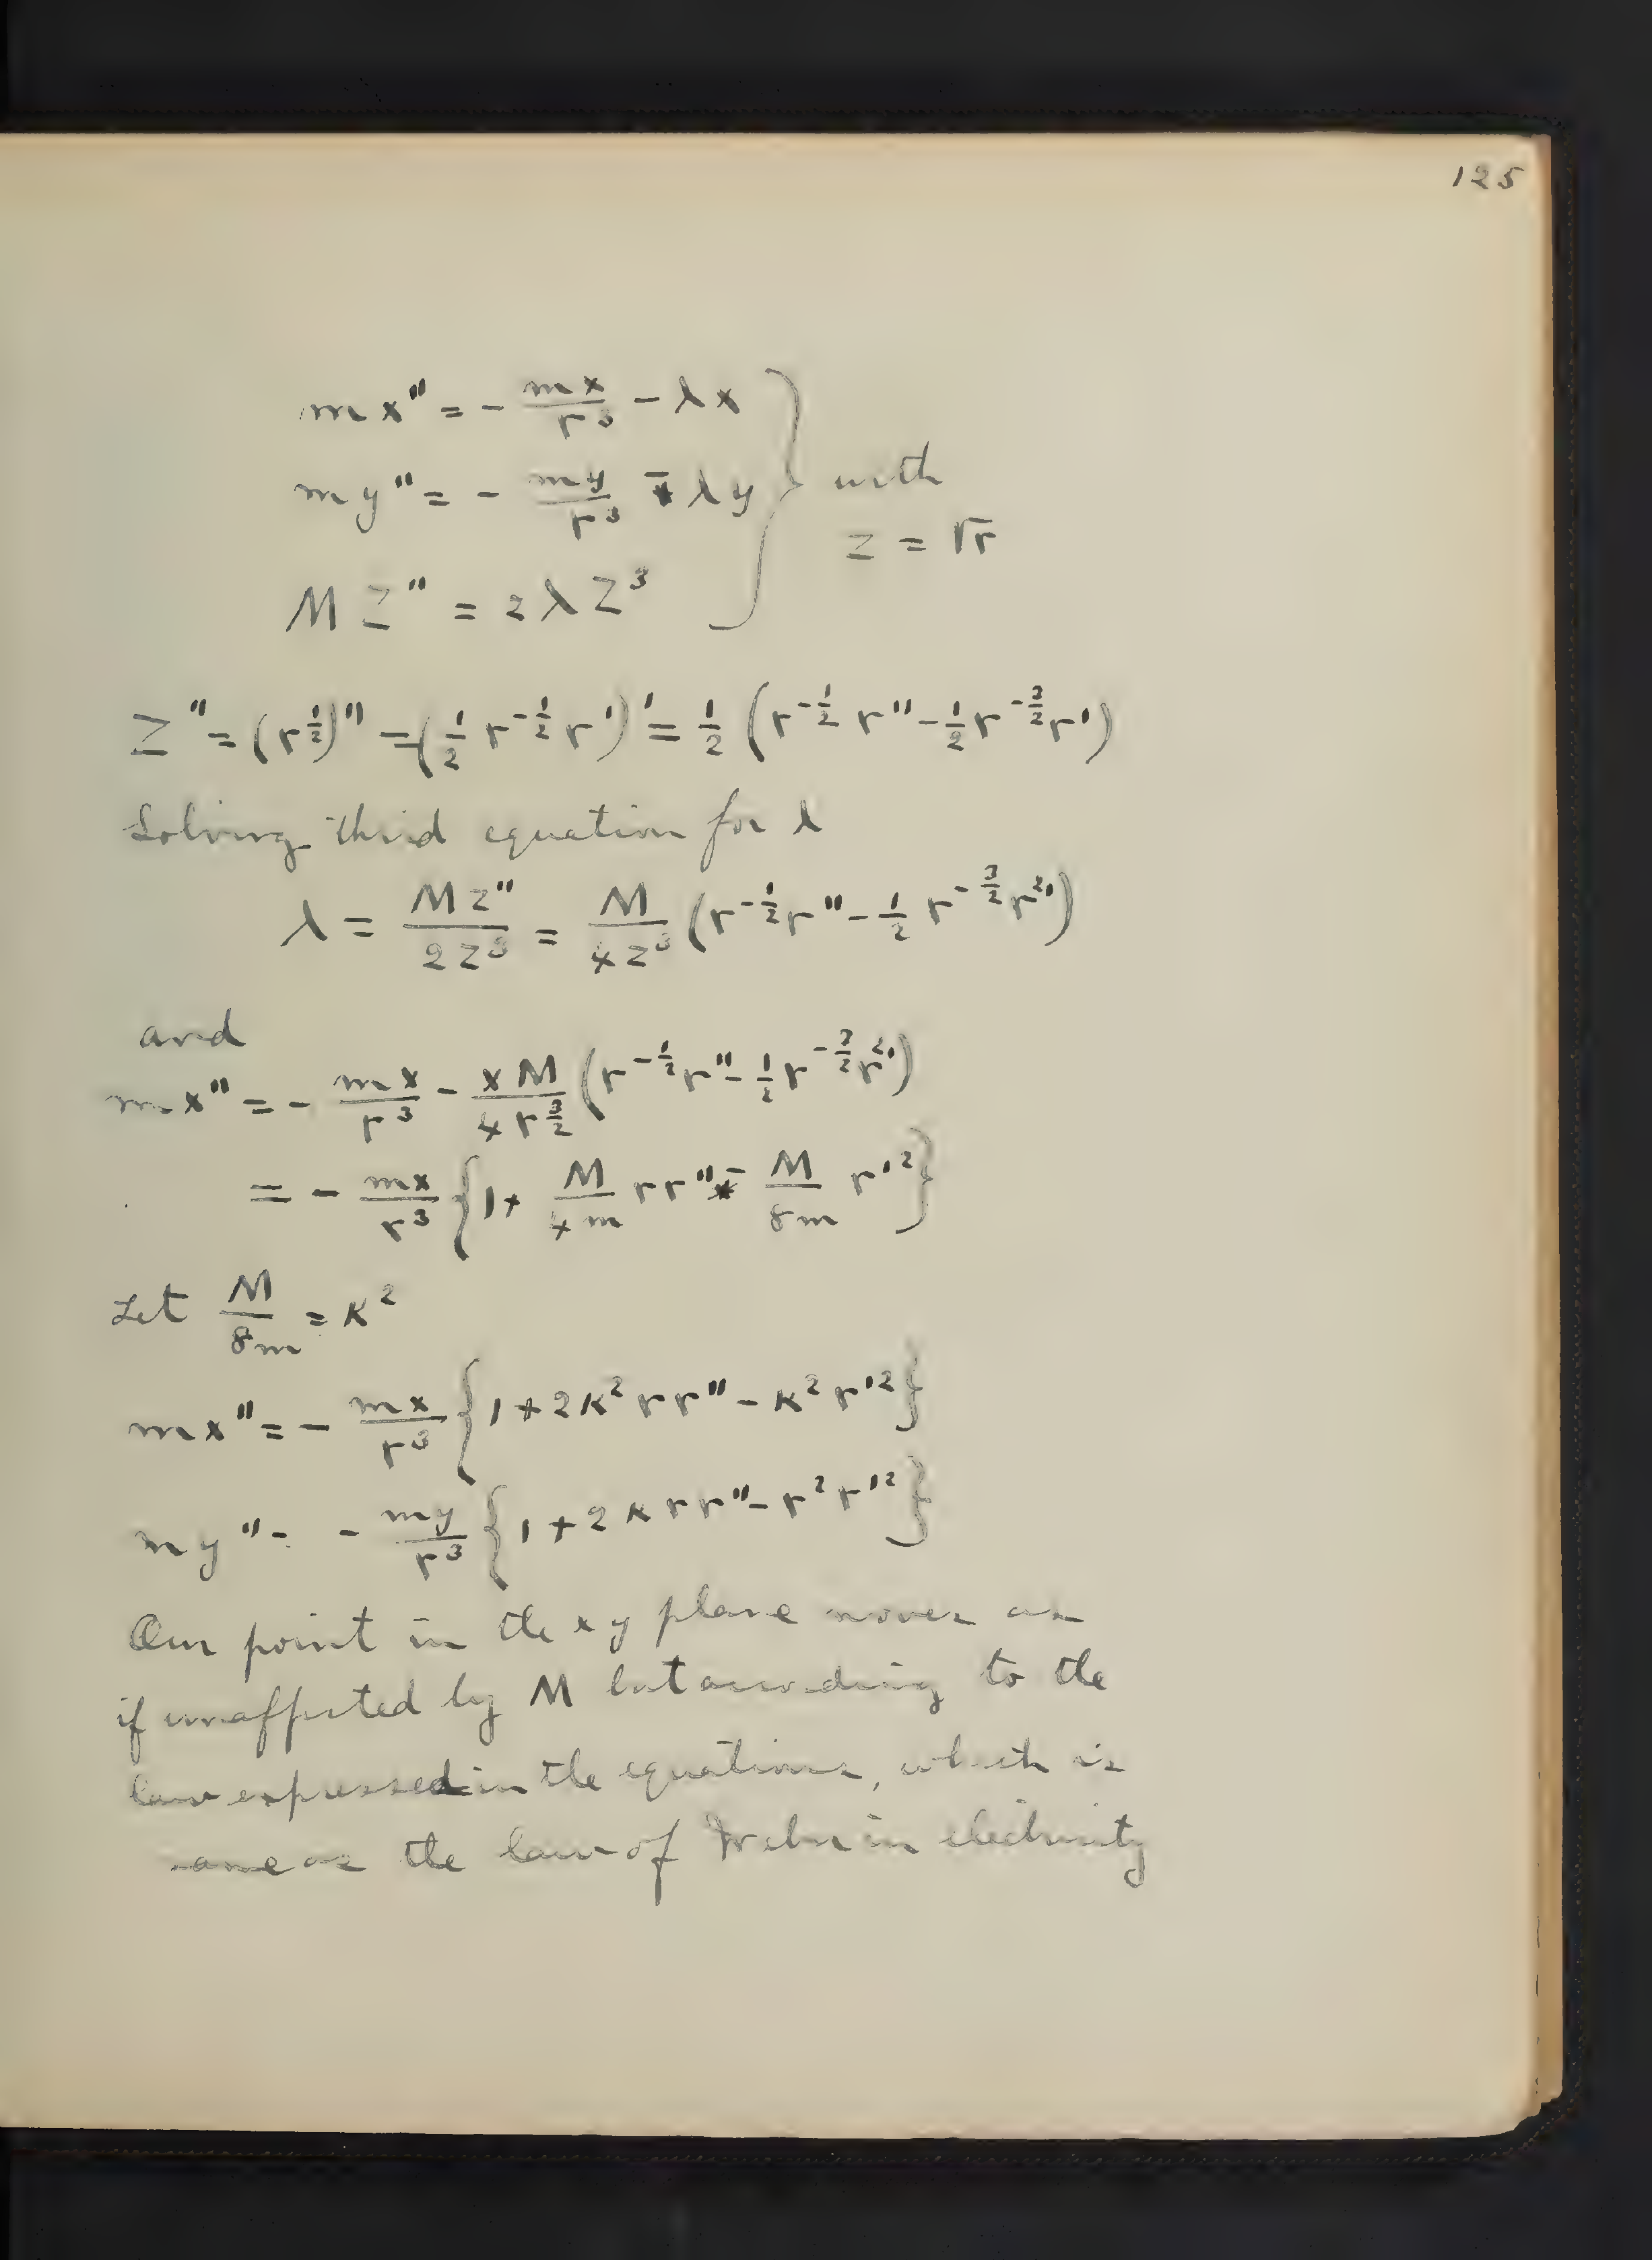 125
mx'' = - mx/r³ - λx
my'' = - my/r³ - λy } with
z = √r
MZ'' = 2λZ³
Z'' = (r^½)'' = (½ r^-½ r')' = ½ (r^-½ r'' - ½ r^-3/2 r')
Solving third equation for λ
λ = Mz''/2z³ = M/4z³ (r^-½ r'' - ½ r^-3/2 r²')
and
mx'' = - mx/r³ - xM/4r^3/2 (r^-½ r'' - ½ r^-3/2 r²')
= - mx/r³ {1 + M/4m rr'' - M/8m r'²}
Let M/8m = K²
mx'' = - mx/r³ {1 + 2K² rr'' - K² r'²}
my'' - - my/r³ {1 + 2K rr'' - r² r'²}
Our point in the xy plane moves as
if unaffected by M but according to the
law expressed in the equations, which is
same as the law of Weber in electricity